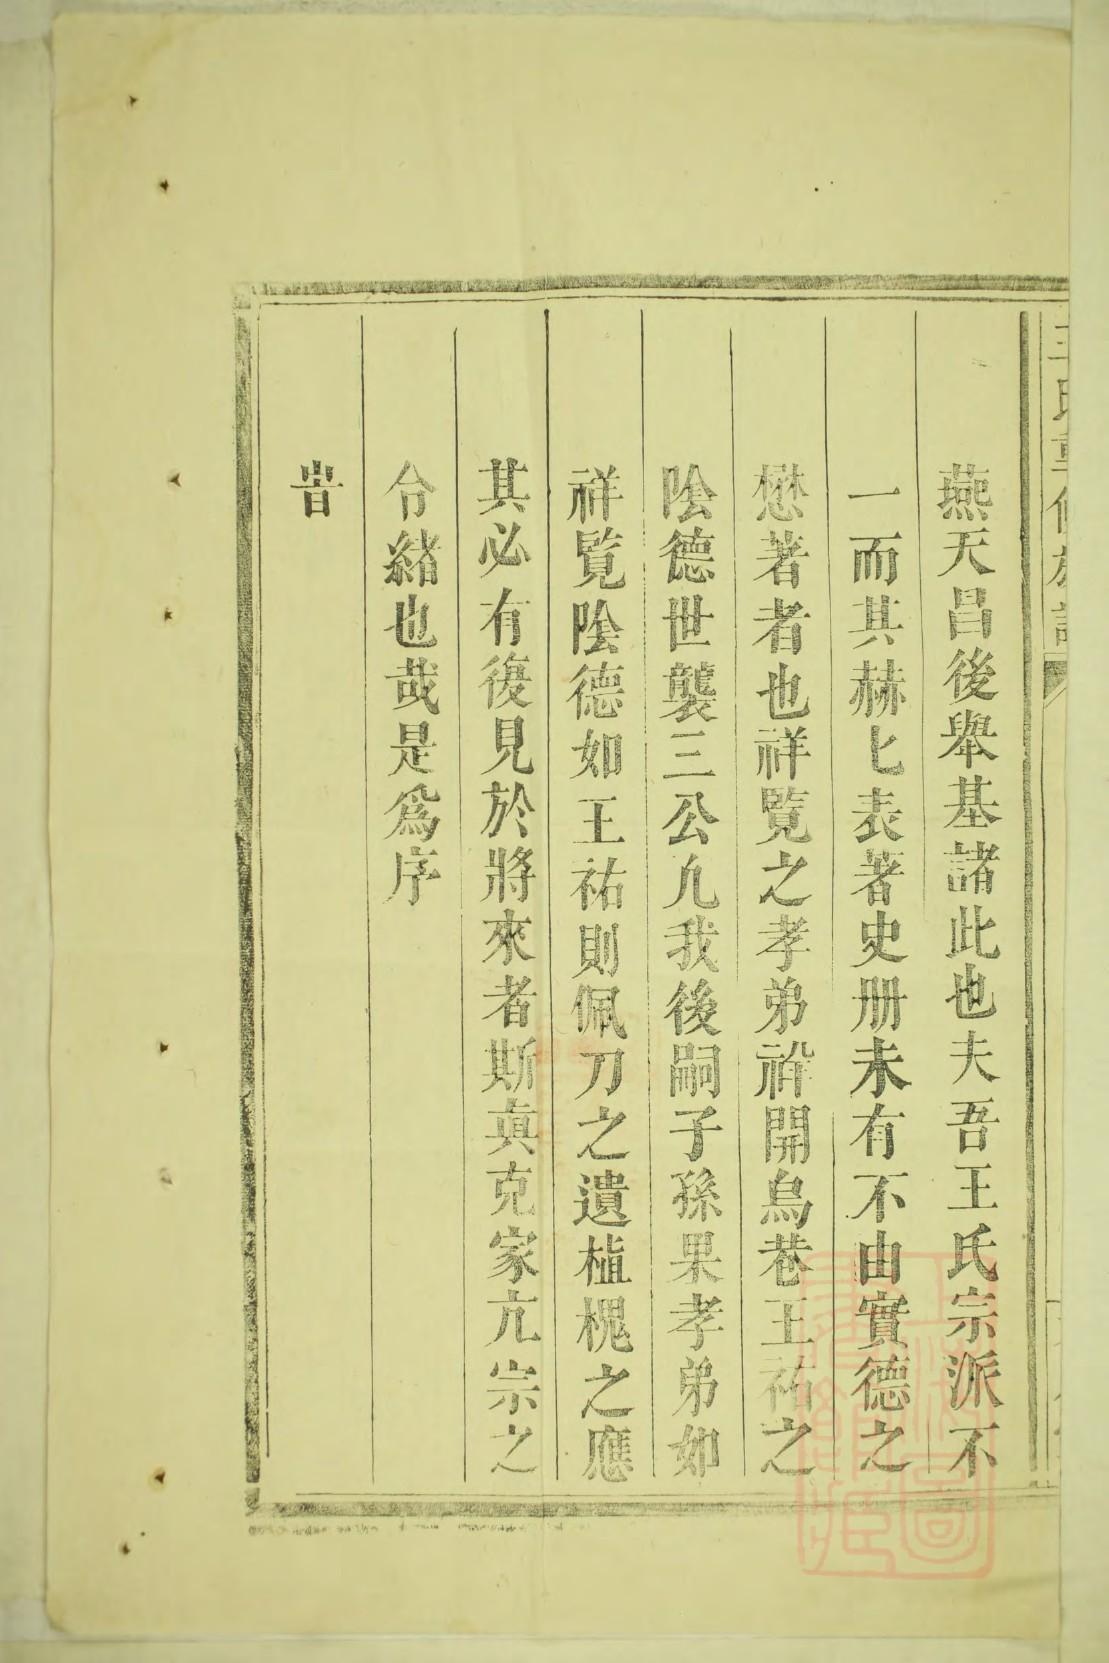 燕天昌後舉基諸此也夫吾王氏宗派不
一而其赫匕表著史册未有不由實德之
懋著者也祥覧之孝弟祚開烏巷王祐之
陰德世襲三公凢我後嗣子孫果孝弟如
祥覧陰德如王祐則佩刀之遺植槐之應
其必有復見於將來者斯真克家亢宗之
令緒也哉是爲序
旹